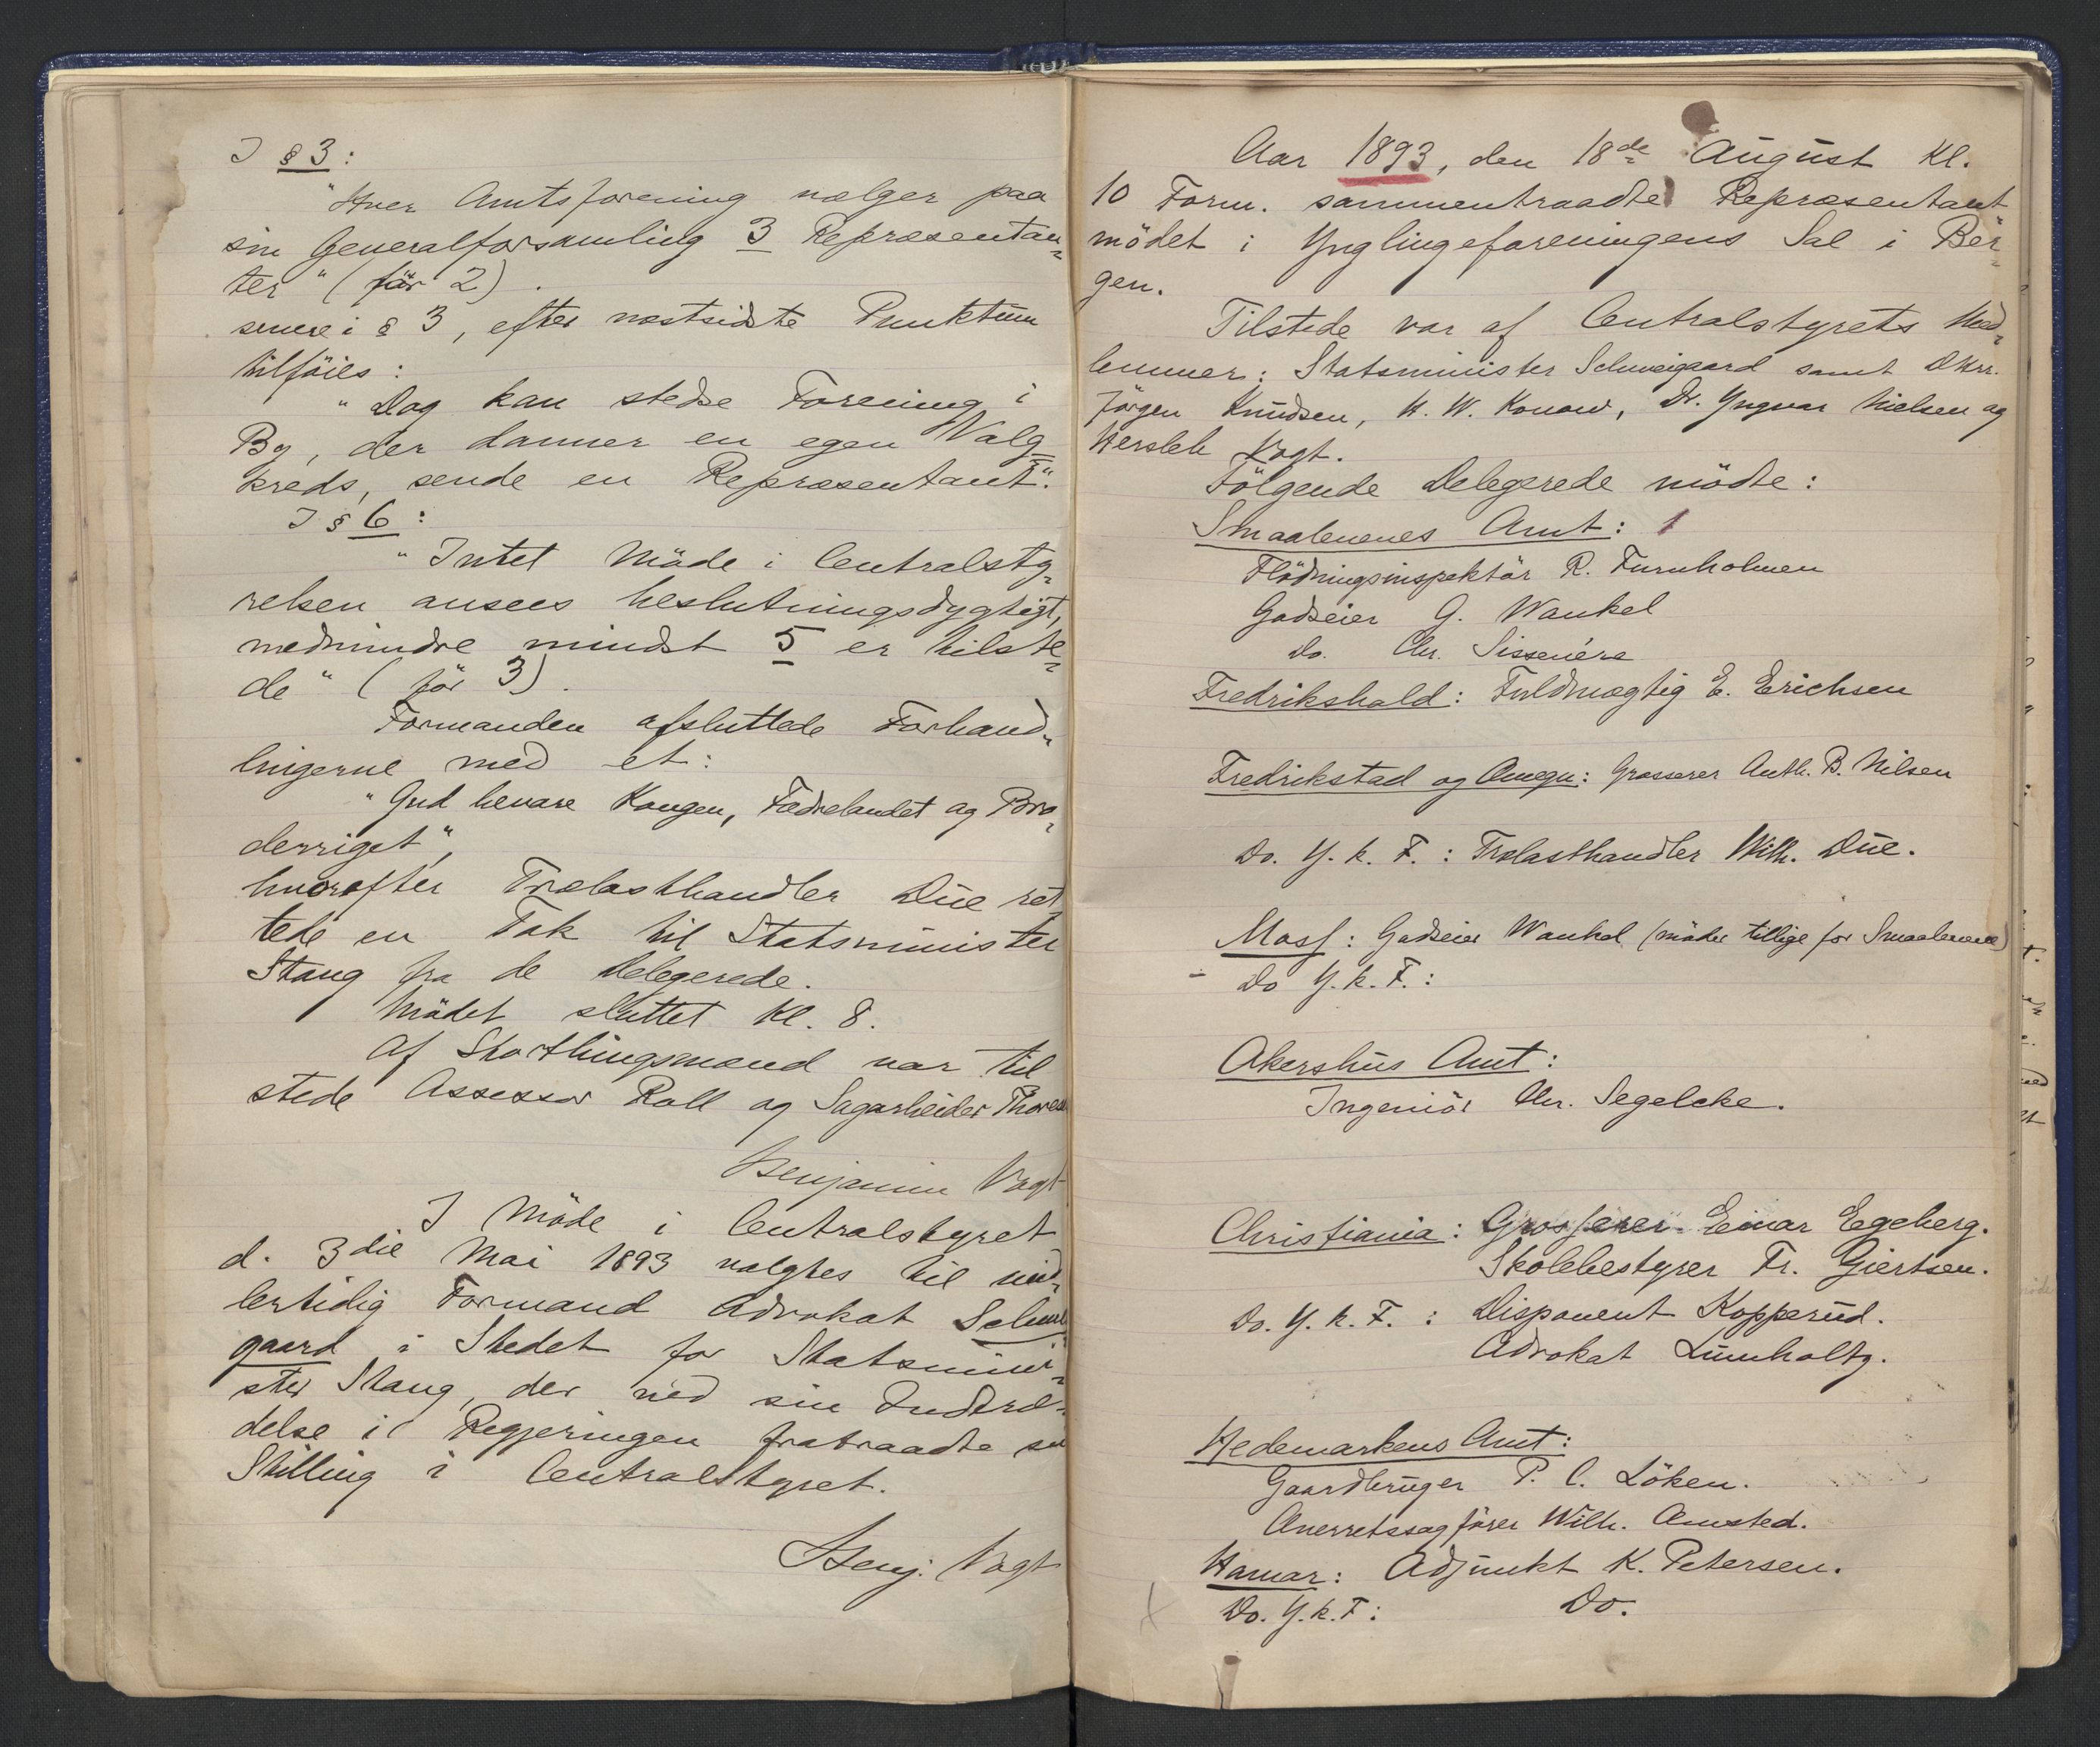 I § 3:
"Hver Amtsforening vælger paa
sin Generalforsamling 3 Repræsentan-
ter" (før 2).
senere i § 3, efter næstsidste Punktum
tilføies:
"Dog kan stedse Forening i
By, der danner en egen Valg-
kreds, sende en Repræsentant".
I § 6:
"Intet Møde i Centralsty-
relsen ansees beslutningsdygtigt,
medmindre mindst 5 er tilste-
de" (før 3).
Formanden afsluttede Forhand-
lingerne med et:
"Gud bevare Kongen, Fædrelandet og Bro-
derriget",
hvorefter Trælasthandler Due ret
tede en Tak til Statsminister
Stang fra de Delegerede.
Mødet sluttet Kl. 8.
Af Storthingsmænd var til
stede Assessor Roll og Sagarbeider Thoresen
Benjamin Vogt
I Møde i Centralstyret
d. 3die Mai 1893 valgtes til mid-
lertidig Formand Advokat Schwei
gaard i Stedet for Statsmini-
ster Stang, der ved sin Indtræ-
delse i Regjeringen fratraadte sin
Stilling i Centralstyret.
Benj. Vogt
Aar 1893, den 18de August Kl.
10 Form. sammentraadte Repræsentant
mødet i Ynglingeforeningens Sal i Ber-
gen.
Tilstede var af Centralstyrets Med-
lemmer: Statsminister Schweigaard samt DHrr.
Jørgen Knudsen, W. Konow, Dr. Yngvar Nielsen og
Hersleb Vogt.
Følgende Delegerede mødte:
Smaalenenes Amt: 1
Flødningsinspektør R. Furuholmen
Godseier G. Wankel
Do. Chr. Sissenére
Fredrikshald: Fuldmægtig E. Erichsen
Fredrikstad og Omegn: Grosserer Anth. B. Nilsen
Do. Y. k. F.: Trælasthandler Wilh. Due.
Moss: Godseier Wankel (møder tillige for Smaalenene)
- Do Y. k. F.:
Akershus Amt:
Ingeniør Chr. Segelcke.
Christiania: Grosserer Einar Egeberg.
Skolebestyrer Fr. Gjertsen.
Do. Y. k. F.: Disponent Kopperud.
Advokat Lumholtz.
Hedemarkens Amt:
Gaardbruger P. C. Løken.
Overretssagfører Wilh. Omsted.
Hamar: Adjunkt K. Petersen.
Do. Y. k. F: Do.